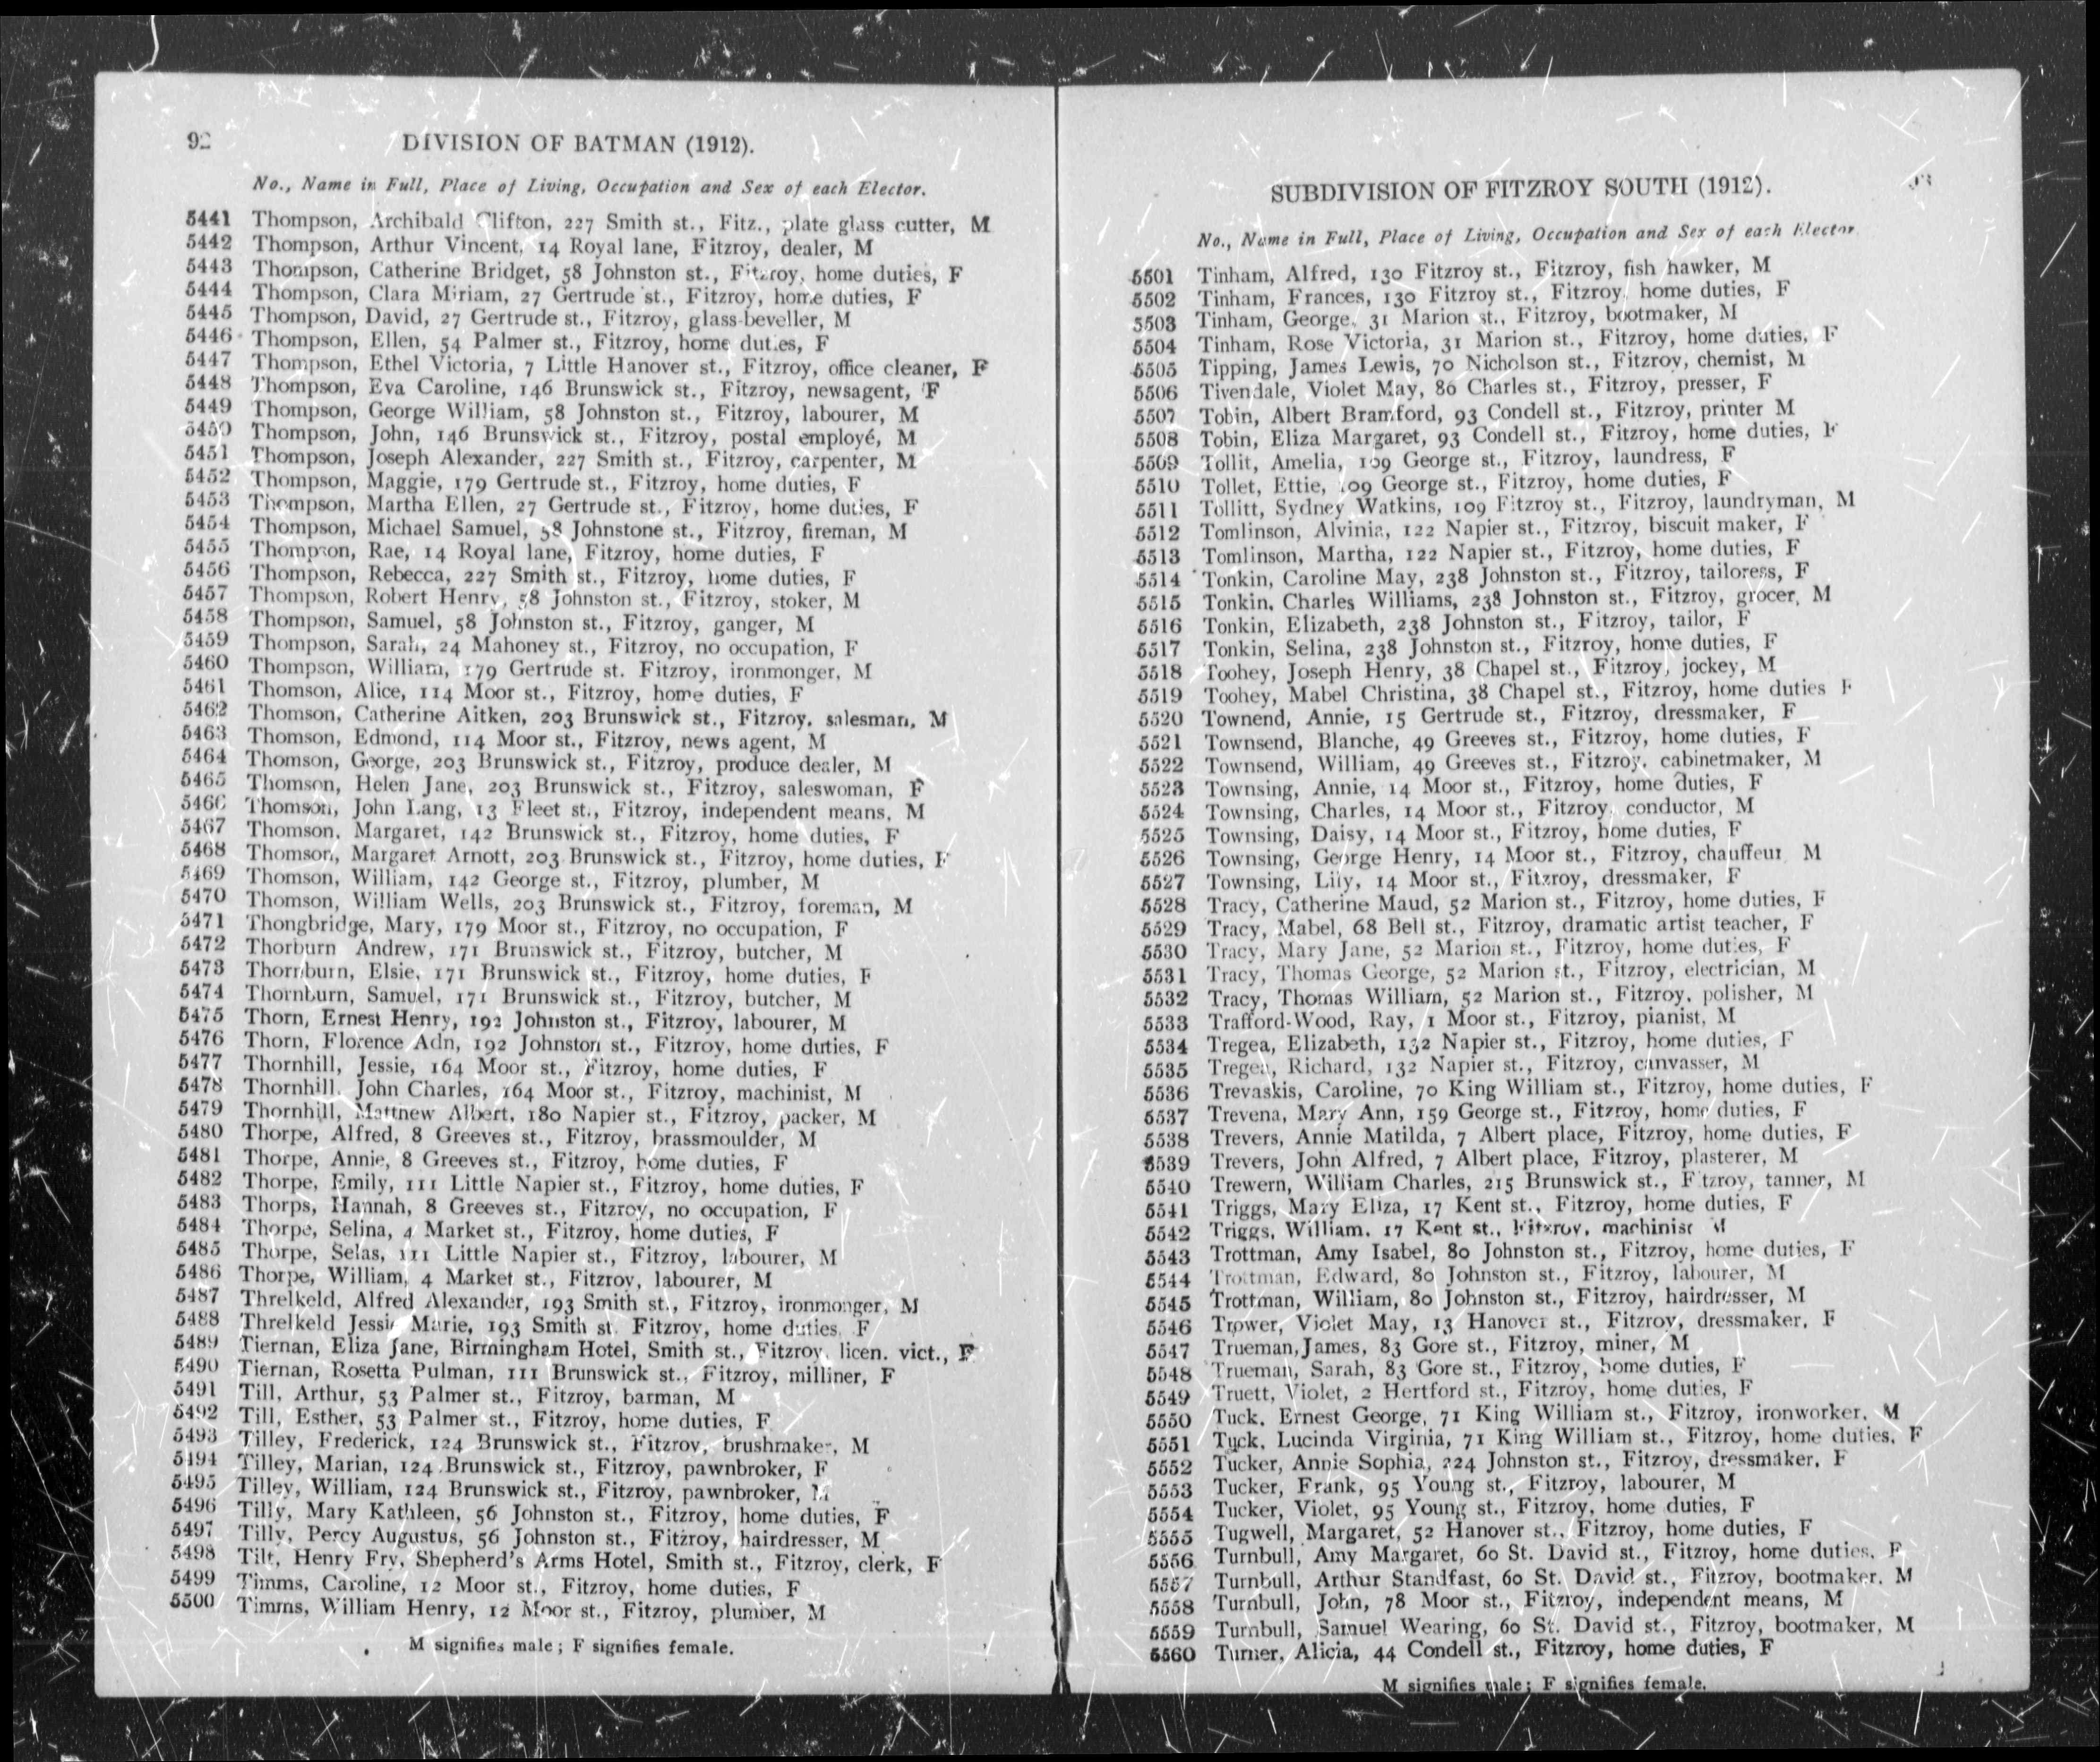 92
DIVISION OF BATMAN (1912).
No., Name in Full, Place of Living, Occupation and Sex of each Elector.
5441 Thompson, Archibald Clifton, 227 Smith st., Fitz., plate glass cutter, M
5442 Thompson, Arthur Vincent, 14 Royal lane, Fitzroy, dealer, M
5443 Thompson, Catherine Bridget, 58 Johnston st., Fitzroy, home duties, F
5444 Thompson, Clara Miriam, 27 Gertrude st., Fitzroy, home duties, F
5445 Thompson, David, 27 Gertrude st., Fitzroy, glass-beveller, M
5446 Thompson, Ellen, 54 Palmer st., Fitzroy, home duties, F
5447 Thompson, Ethel Victoria, 7 Little Hanover st., Fitzroy, office cleaner, F
5448 Thompson, Eva Caroline, 146 Brunswick st., Fitzroy, newsagent, F
5449 Thompson, George William, 58 Johnston st., Fitzroy, labourer, M
5450 Thompson, John, 146 Brunswick st., Fitzroy, postal employé, M
5451 Thompson, Joseph Alexander, 227 Smith st., Fitzroy, carpenter, M
5452 Thompson, Maggie, 179 Gertrude st., Fitzroy, home duties, F
5453 Thompson, Martha Ellen, 27 Gertrude st., Fitzroy, home duties, F
5454 Thompson, Michael Samuel, 58 Johnstone st., Fitzroy, fireman, M
5455 Thompson, Rae, 14 Royal lane, Fitzroy, home duties, F
5456 Thompson, Rebecca, 227 Smith st., Fitzroy, home duties, F
5457 Thompson, Robert Henry, 58 Johnston st., Fitzroy, stoker, M
5458 Thompson, Samuel, 58 Johnston st., Fitzroy, ganger, M
5459 Thompson, Sarah, 24 Mahoney st., Fitzroy, no occupation, F
5460 Thompson, William, 179 Gertrude st. Fitzroy, ironmonger, M
5461 Thomson, Alice, 114 Moor st., Fitzroy, home duties, F
5462 Thomson, Catherine Aitken, 203 Brunswick st., Fitzroy, salesman, M
5463 Thomson, Edmond, 114 Moor st., Fitzroy, news agent, M
5464 Thomson, George, 203 Brunswick st., Fitzroy, produce dealer, M
5465 Thomson, Helen Jane, 203 Brunswick st., Fitzroy, saleswoman, F
5466 Thomson, John Lang, 13 Fleet st., Fitzroy, independent means, M
5467 Thomson, Margaret, 142 Brunswick st., Fitzroy, home duties, F
5468 Thomson, Margaret Arnott, 203 Brunswick st., Fitzroy, home duties, F
5469 Thomson, William, 142 George st., Fitzroy, plumber, M
5470 Thomson, William Wells, 203 Brunswick st., Fitzroy, foreman, M
5471 Thongbridge, Mary, 179 Moor st., Fitzroy, no occupation, F
5472 Thorburn Andrew, 171 Brunswick st., Fitzroy, butcher, M
5473 Thornburn, Elsie, 171 Brunswick st., Fitzroy, home duties, F
5474 Thornburn, Samuel, 171 Brunswick st., Fitzroy, butcher, M
5475 Thorn, Ernest Henry, 192 Johnston st., Fitzroy, labourer, M
5476 Thorn, Florence Adn, 192 Johnston st., Fitzroy, home duties, F
5477 Thornhill, Jessie, 164 Moor st., Fitzroy, home duties, F
5478 Thornhill, John Charles, 164 Moor st., Fitzroy, machinist, M
5479 Thornhill, Matthew Albert, 180 Napier st., Fitzroy, packer, M
5480 Thorpe, Alfred, 8 Greeves st., Fitzroy, brassmoulder, M
5481 Thorpe, Annie, 8 Greeves st., Fitzroy, home duties, F
5482 Thorpe, Emily, 111 Little Napier st., Fitzroy, home duties, F
5483 Thorps, Hannah, 8 Greeves st., Fitzroy, no occupation, F
5484 Thorpe, Selina, 4 Market st., Fitzroy, home duties, F
5485 Thorpe, Selas, 111 Little Napier st., Fitzroy, labourer, M
5486 Thorpe, William, 4 Market st., Fitzroy, labourer, M
5487 Threlkeld, Alfred Alexander, 193 Smith st., Fitzroy, ironmonger, M
5488 Threlkeld Jessie Marie, 193 Smith st. Fitzroy, home duties, F
5489 Tiernan, Eliza Jane, Birmingham Hotel, Smith st., Fitzroy, licen. vict., F
5490 Tiernan, Rosetta Pulman, 111 Brunswick st., Fitzroy, milliner, F
5491 Till, Arthur, 53 Palmer st., Fitzroy, barman, M
5492 Till, Esther, 53 Palmer st., Fitzroy, home duties, F
5493 Tilley, Frederick, 124 Brunswick st., Fitzroy, brushmaker, M
5494 Tilley, Marian, 124 Brunswick st., Fitzroy, pawnbroker, F
5495 Tilley, William, 124 Brunswick st., Fitzroy, pawnbroker, M
5496 Tilly, Mary Kathleen, 56 Johnston st., Fitzroy, home duties, F
5497 Tilly, Percy Augustus, 56 Johnston st., Fitzroy, hairdresser, M
5498 Tilt, Henry Fry, Shepherd's Arms Hotel, Smith st., Fitzroy, clerk, F
5499 Timms, Caroline, 12 Moor st., Fitzroy, home duties, F
5500 Timms, William Henry, 12 Moor st., Fitzroy, plumber, M
M signifies male; F signifies female.
SUBDIVISION OF FITZROY SOUTH (1912).
No., Name in Full, Place of Living, Occupation and Sex of each Elector.
5501 Tinham, Alfred, 130 Fitzroy st., Fitzroy, fish hawker, M
5502 Tinham, Frances, 130 Fitzroy st., Fitzroy, home duties, F
5503 Tinham, George, 31 Marion st., Fitzroy, bootmaker, M
5504 Tinham, Rose Victoria, 31 Marion st., Fitzroy, home duties, F
5505 Tipping, James Lewis, 70 Nicholson st., Fitzroy, chemist, M
5506 Tivendale, Violet May, 86 Charles st., Fitzroy, presser, F
5507 Tobin, Albert Bramford, 93 Condell st., Fitzroy, printer M
5508 Tobin, Eliza Margaret, 93 Condell st., Fitzroy, home duties, F
5509 Tollit, Amelia, 109 George st., Fitzroy, laundress, F
5510 Tollet, Ettie, 109 George st., Fitzroy, home duties, F
5511 Tollitt, Sydney Watkins, 109 Fitzroy st., Fitzroy, laundryman, M
5512 Tomlinson, Alvinia, 122 Napier st., Fitzroy, biscuit maker, F
5513 Tomlinson, Martha, 122 Napier st., Fitzroy, home duties, F
5514 Tonkin, Caroline May, 238 Johnston st., Fitzroy, tailoress, F
5515 Tonkin, Charles Williams, 238 Johnston st., Fitzroy, grocer, M
5516 Tonkin, Elizabeth, 238 Johnston st., Fitzroy, tailor, F
5517 Tonkin, Selina, 238 Johnston st., Fitzroy, home duties, F
5518 Toohey, Joseph Henry, 38 Chapel st., Fitzroy, jockey, M
5519 Toohey, Mabel Christina, 38 Chapel st., Fitzroy, home duties F
5520 Townend, Annie, 15 Gertrude st., Fitzroy, dressmaker, F
5521 Townsend, Blanche, 49 Greeves st., Fitzroy, home duties, F
5522 Townsend, William, 49 Greeves st., Fitzroy, cabinetmaker, M
5523 Townsing, Annie, 14 Moor st., Fitzroy, home duties, F
5524 Townsing, Charles, 14 Moor st., Fitzroy, conductor, M
5525 Townsing, Daisy, 14 Moor st., Fitzroy, home duties, F
5526 Townsing, George Henry, 14 Moor st., Fitzroy, chauffeur M
5527 Townsing, Lily, 14 Moor st., Fitzroy, dressmaker, F
5528 Tracy, Catherine Maud, 52 Marion st., Fitzroy, home duties, F
5529 Tracy, Mabel, 68 Bell st., Fitzroy, dramatic artist teacher, F
5530 Tracy, Mary Jane, 52 Marion st., Fitzroy, home duties, F
5531 Tracy, Thomas George, 52 Marion st., Fitzroy, electrician, M
5532 Tracy, Thomas William, 52 Marion st., Fitzroy, polisher, M
5533 Trafford-Wood, Ray, 1 Moor st., Fitzroy, pianist, M
5534 Tregea, Elizabeth, 132 Napier st., Fitzroy, home duties, F
5535 Tregea, Richard, 132 Napier st., Fitzroy, canvasser, M
5536 Trevaskis, Caroline, 70 King William st., Fitzroy, home duties, F
5537 Trevena, Mary Ann, 159 George st., Fitzroy, home duties, F
5538 Trevers, Annie Matilda, 7 Albert place, Fitzroy, home duties, F
5539 Trevers, John Alfred, 7 Albert place, Fitzroy, plasterer, M
5540 Trewern, William Charles, 215 Brunswick st., Fitzroy, tanner, M
5541 Triggs, Mary Eliza, 17 Kent st., Fitzroy, home duties, F
5542 Triggs, William, 17 Kent st., Fitzroy, machinist M
5543 Trottman, Amy Isabel, 80 Johnston st., Fitzroy, home duties, F
5544 Trottman, Edward, 80 Johnston st., Fitzroy, labourer, M
5545 Trottman, William, 80 Johnston st., Fitzroy, hairdresser, M
5546 Trower, Violet May, 13 Hanover st., Fitzroy, dressmaker, F
5547 Trueman, James, 83 Gore st., Fitzroy, miner, M
5548 Trueman, Sarah, 83 Gore st., Fitzroy, home duties, F
5549 Truett, Violet, 2 Hertford st., Fitzroy, home duties, F
5550 Tuck, Ernest George, 71 King William st., Fitzroy, ironworker, M
5551 Tuck, Lucinda Virginia, 71 King William st., Fitzroy, home duties, F
5552 Tucker, Annie Sophia, 224 Johnston st., Fitzroy, dressmaker, F
5553 Tucker, Frank, 95 Young st., Fitzroy, labourer, M
5554 Tucker, Violet, 95 Young st., Fitzroy, home duties, F
5555 Tugwell, Margaret, 52 Hanover st., Fitzroy, home duties, F
5556 Turnbull, Amy Margaret, 60 St. David st., Fitzroy, home duties, F
5557 Turnbull, Arthur Standfast, 60 St. David st., Fitzroy, bootmaker, M
5558 Turnbull, John, 78 Moor st., Fitzroy, independent means, M
5559 Turnbull, Samuel Wearing, 60 St. David st., Fitzroy, bootmaker, M
5560 Turner, Alicia, 44 Condell st., Fitzroy, home duties, F
M signifies male; F signifies female.